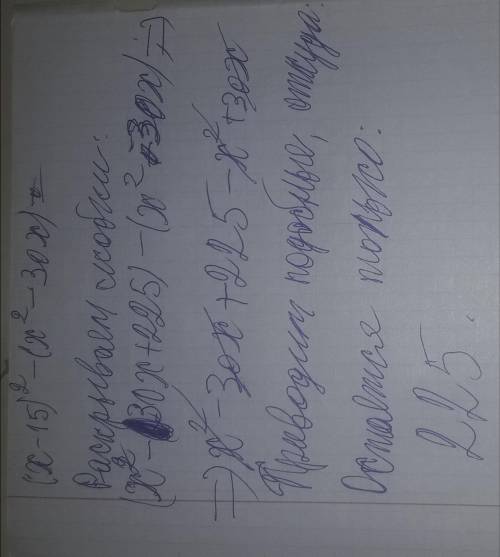 (x-15)² - (x² - 30x) =
Раскрываем скобки:
(x² - 30x + 225) - (x² - 30x) ⇒
⇒ x² - 30x + 225 - x² + 30x
Приводим подобные, откуда:
Остаётся только:
225.